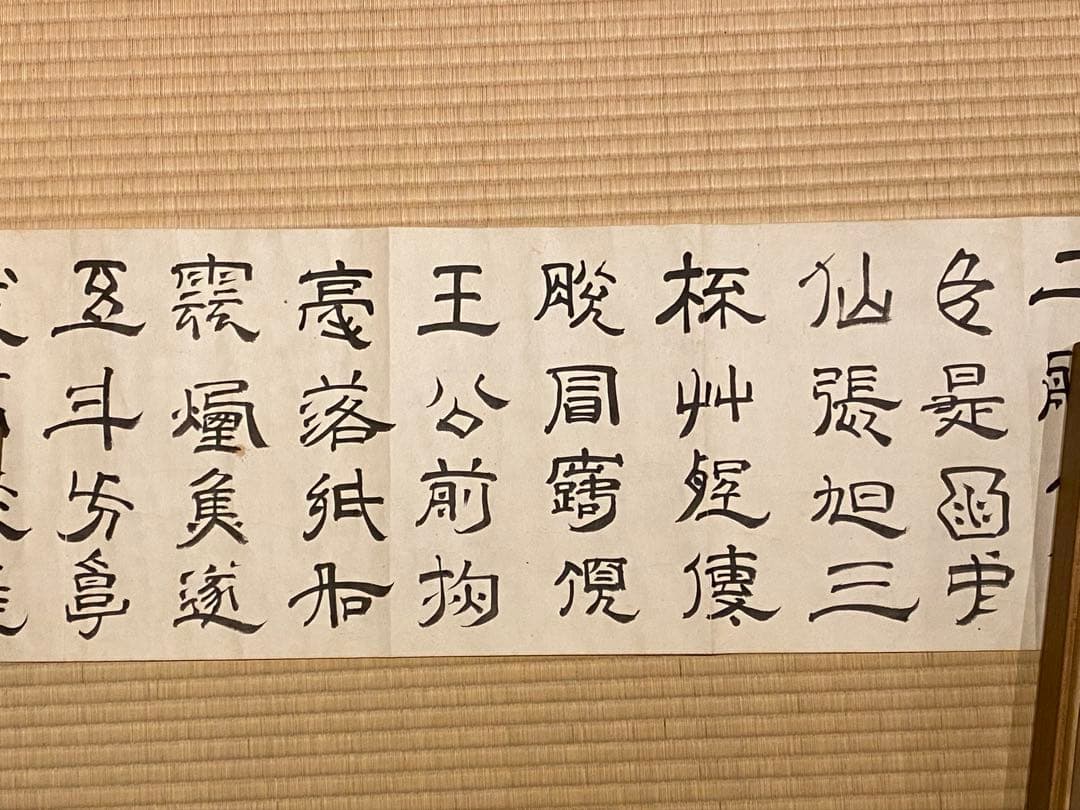 臣是酒中
仙張旭三
杯艸聖傳
脫冒露頂
王公前揮
毫落紙如
雲煙焦遂
五斗方卓